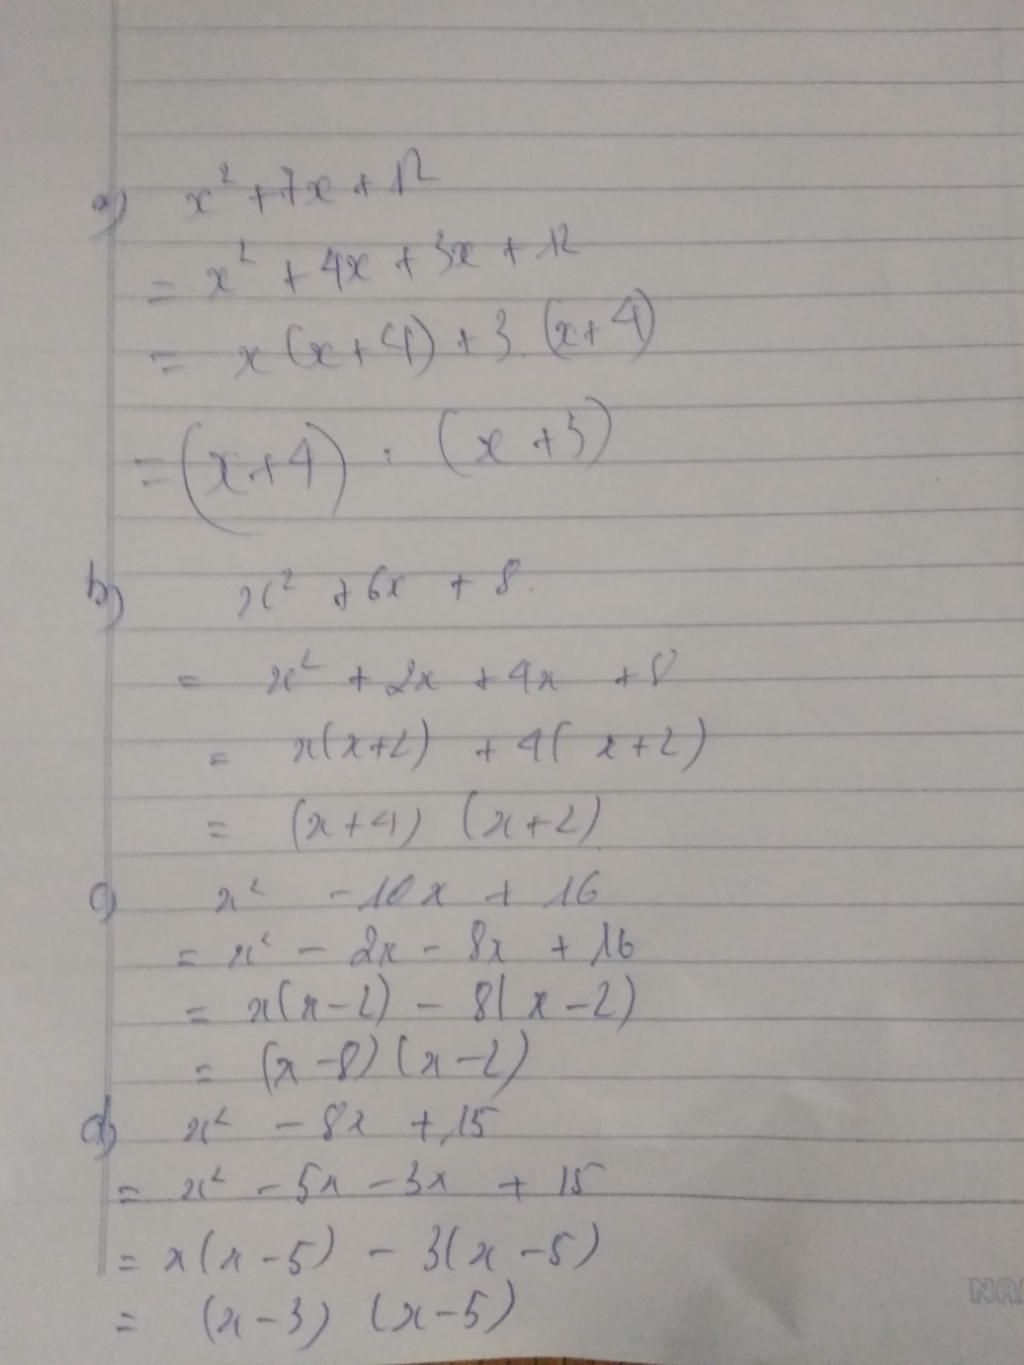 a) x² + 7x + 12
= x² + 4x + 3x + 12
= x(x+4) + 3.(x+4)
= (x+4) . (x+3)
b) x² + 6x + 8.
= x² + 2x + 4x + 8
= x(x+2) + 4(x+2)
= (x+4) (x+2)
c) x² - 10x + 16
= x² - 2x - 8x + 16
= x(x-2) - 8(x-2)
= (x-8)(x-2)
d) x² - 8x + 15
= x² - 5x - 3x + 15
= x(x-5) - 3(x-5)
= (x-3) (x-5)